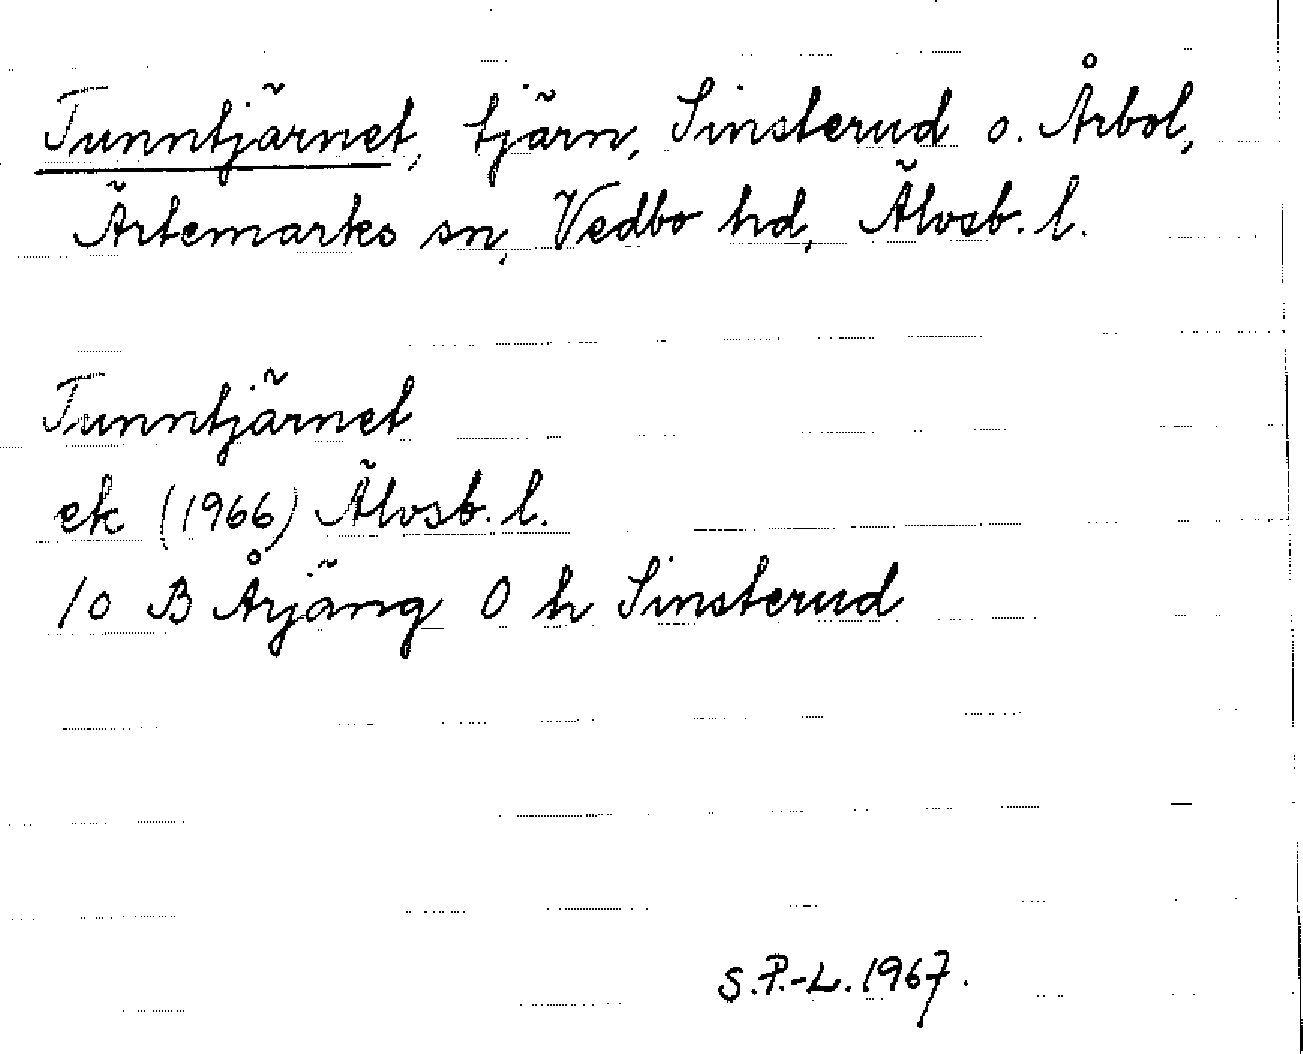 Tunntjärnet, tjärn, Sinsterud o. Årbol,
Ärtemarks sn, Vedbo hd, Älvsb. l.
Tunntjärnet
ek (1966) Älvsb. l.
10 B Årjäng 0 h Sinsterud
S.P.-L. 1967.